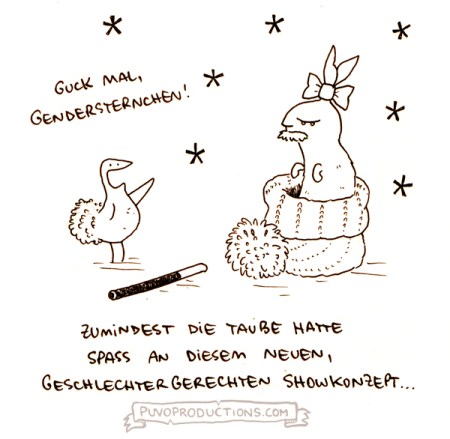 GUCK MAL,
GENDERSTERNCHEN!
ZUMINDEST DIE TAUBE HATTE
SPASS AN DIESEM NEUEN,
GESCHLECHTERGERECHTEN SHOWKONZEPT...
PUVOPRODUCTIONS.COM